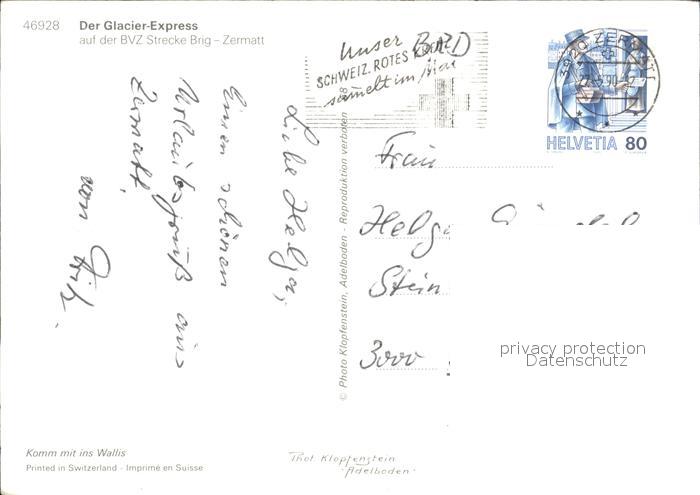 46928 Der Glacier-Express
auf der BVZ Strecke Brig – Zermatt
Liebe Helga,
Einen schönen
Urlaubsgruß aus
Zermatt,
von
Komm mit ins Wallis
Printed in Switzerland - Imprimé en Suisse
© Photo Klopfenstein, Adelboden - Reproduktion verboten
Unser
SCHWEIZ. ROTES KREUZ
sammelt im Mai
3920 ZERMATT
HELVETIA 80
Frau
Helga
Stein
3000
privacy protection
Datenschutz
Phot. Klopfenstein
Adelboden